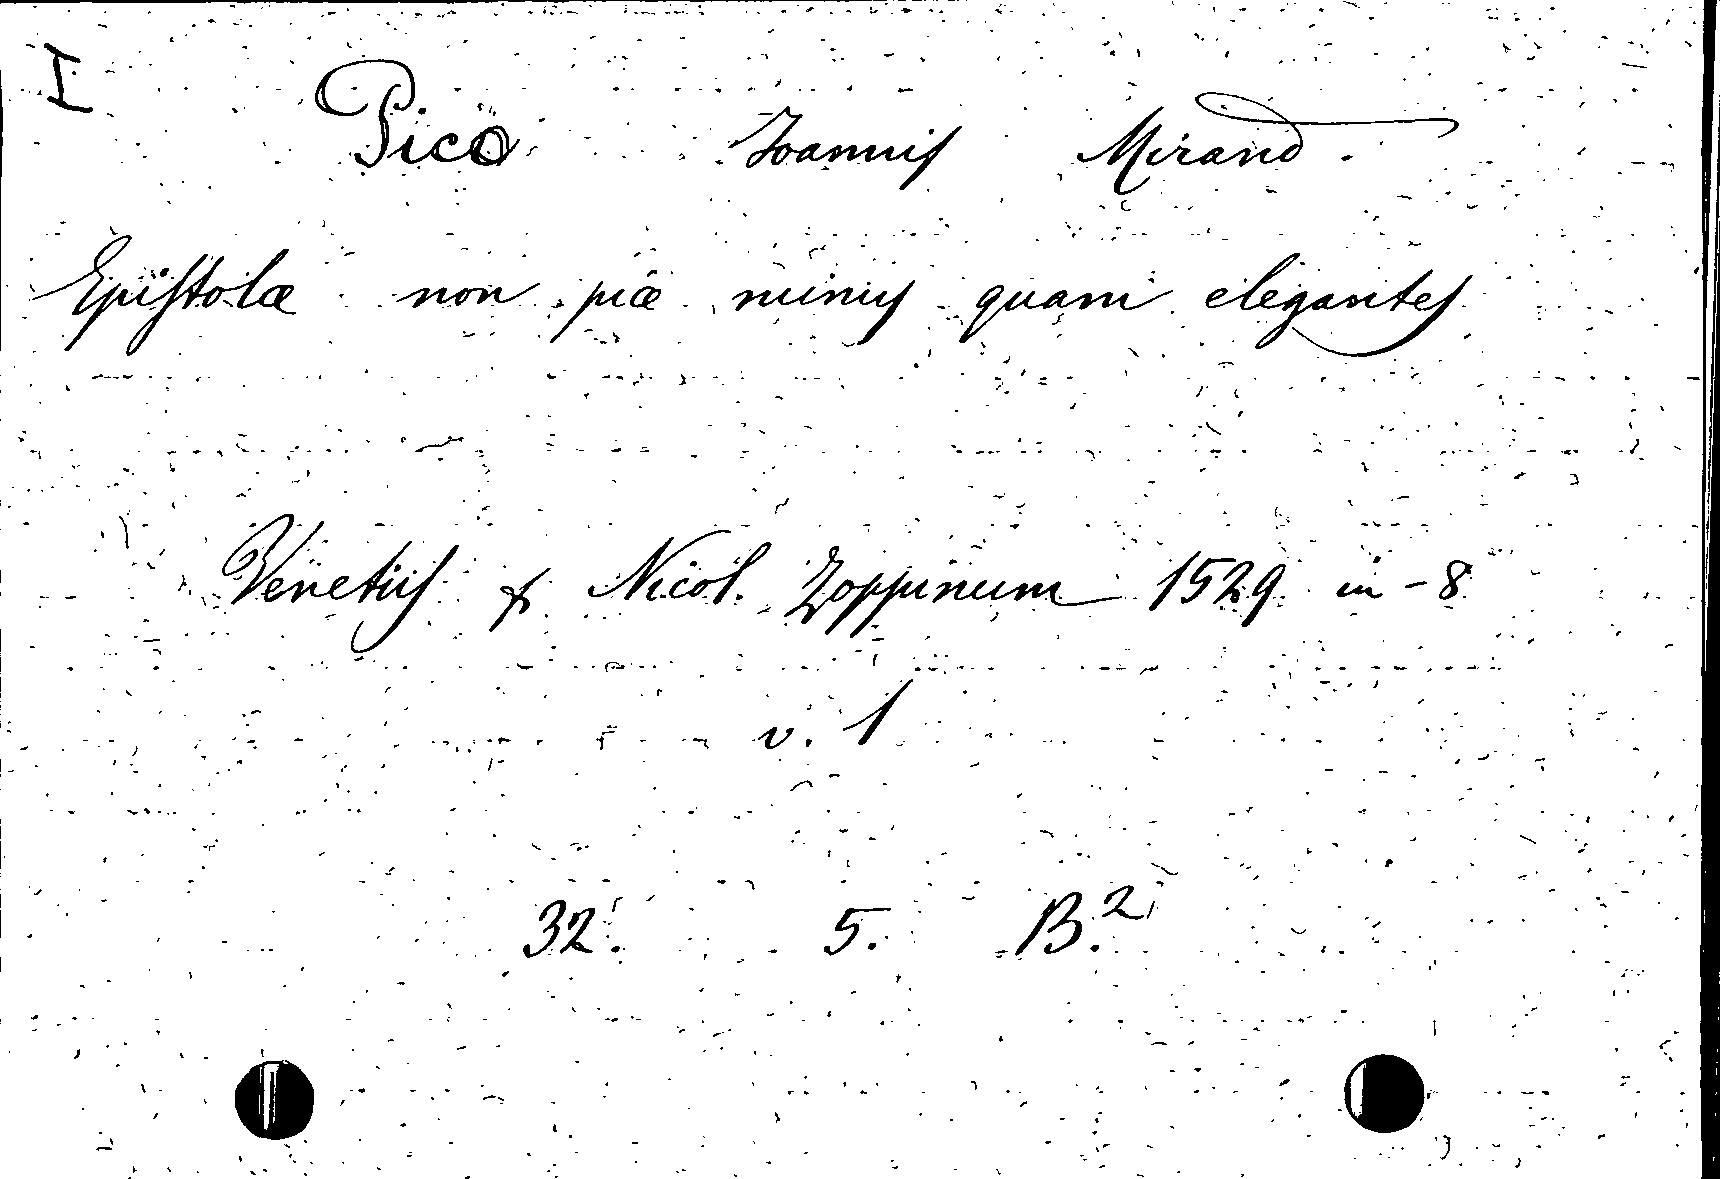 I
Pico Joannis Mirand.
Epistolæ non piæ minus quam elegantes
Venetiis p Nicol. Zoppinum 1529 in-8
v. 1
32. 5. B.2